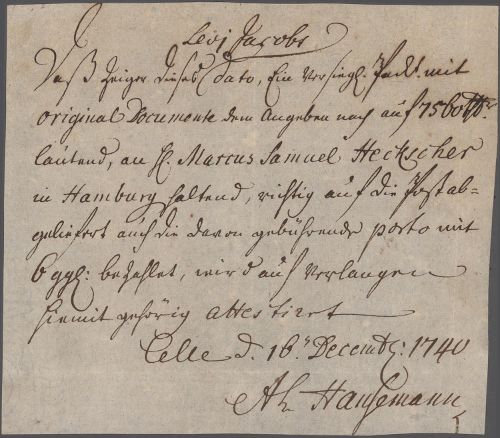 Levi Jacobs
Daß Zeiger dieses Dato, Ein versiegl. Pack. mit
original Documente dem Angeben nach auf 7560 rthlr.
lautend, an H. Marcus Samuel Heckscher
in Hamburg haltend, richtig auf die Post ab=
geliefert auch die davon gebührende porto mit
6 ggl: bezahlet, wird auf Verlangen
hiemit gehörig attestiret
Celle d. 16. Decembr: 1740
Hansemann